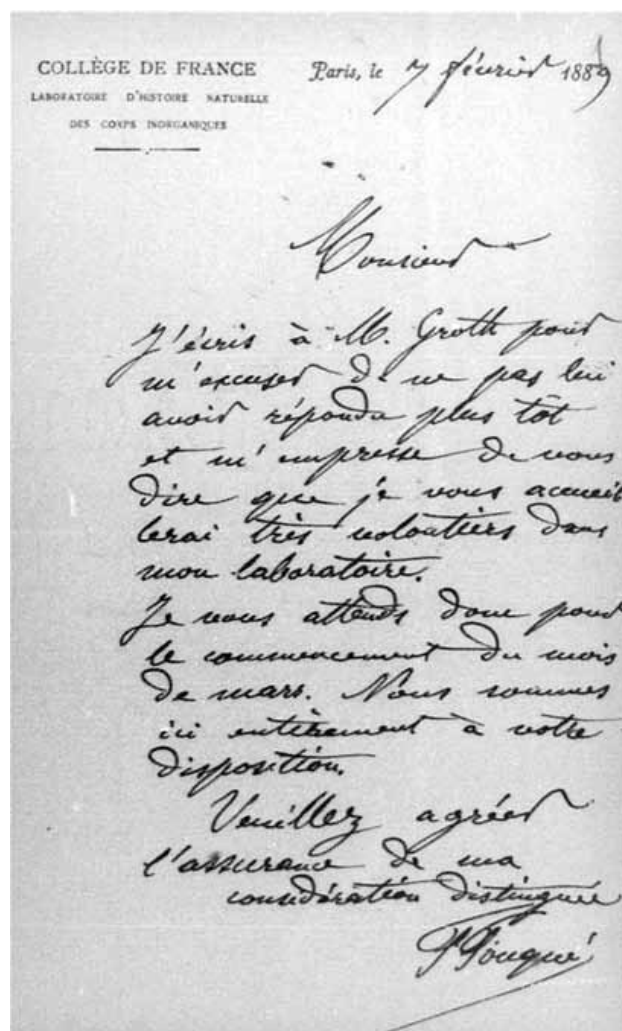 COLLÈGE DE FRANCE
LABORATOIRE D'HISTOIRE NATURELLE
DES CORPS INORGANIQUES
Paris, le 7 février 1889
Monsieur
J'écris à M. Groth pour
m'excuser de ne pas lui
avoir répondu plus tôt
et m'empresse de vous
dire que je vous accueil
lerai très volontiers dans
mon laboratoire.
Je vous attends donc pour
le commencement du mois
de mars. Nous sommes
ici entièrement à votre
disposition.
Veuillez agréer
l'assurance de ma
considération distinguée
F Fouqué